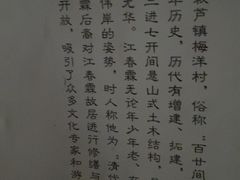 萩芦镇梅洋村，俗称：百廿间
年历史，历代有增建、拓建，
二进七开间悬山式土木结构，
光华。江春霖无论年少年老、在
伟岸的姿势，时人称他为：清代
霖后裔对江春霖故居进行修缮与
开放，吸引了众多文化专家和游